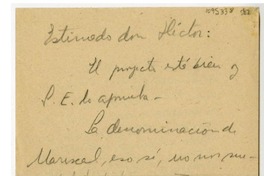 Estimado don Héctor:
El proyecto está bien y
S. E. lo aprueba.-
La denominación de
Mariscal, eso sí, no nos